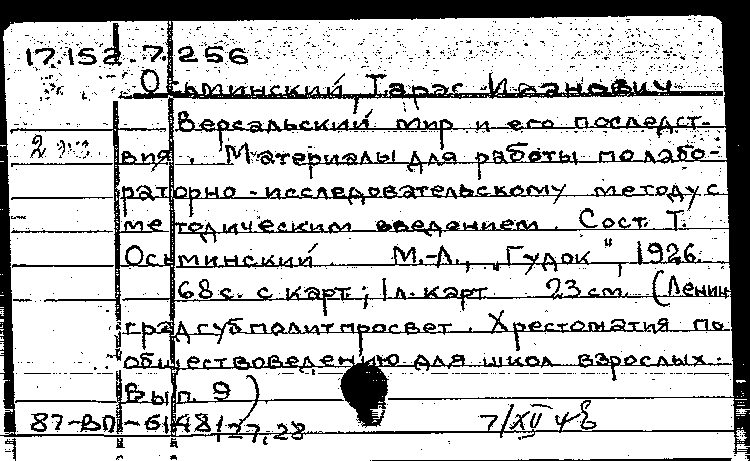 17.152.7.256
Осьминский, Тарас Иванович
Версальский мир и его последст-
2 экз вия. Материалы для работы по лабо-
раторно-исследовательскому методу с
методическим введением. Сост. Т.
Осьминский. М.-Л., „Гудок“, 1926.
68 с. с карт.; 1 л. карт. 23 см. (Ленин-
градгубполитпросвет. Хрестоматия по
обществоведению для школ взрослых.
Вып. 9)
87-ВП-6148/27,28 7/XII 48